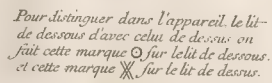 Pour distinguer dans l'appareil. le lit-
de dessous d'avec celui de dessus on
fait cette marque ʘ sur le lit de dessous.
et cette marque ꓘ sur le lit de dessus.